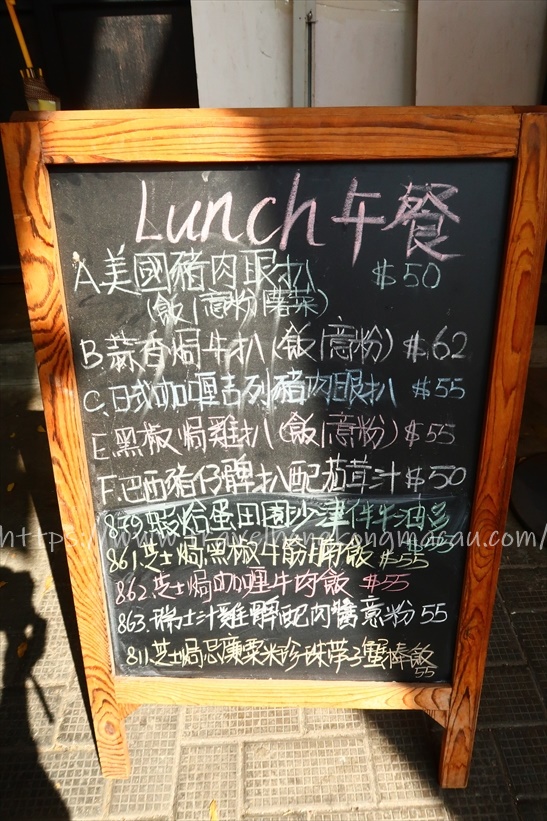 Lunch 午餐
A.美國豬肉眼扒 $50
(飯|意粉|薯菜)
B.蒜香焗牛扒(飯|意粉) $62
C.日式咖喱吉列豬肉眼扒 $55
E.黑椒焗雞扒(飯|意粉) $55
F.巴西豬仔髀扒配茄茸汁 $50
蛋田園沙津伴牛油多
861.芝士焗黑椒牛筋腩飯 $55
862.芝士焗咖喱牛肉飯 $55
863.瑞士汁雞髀配肉醬意粉 55
811.芝士焗忌廉粟米珍珠帶子蟹棒飯
55